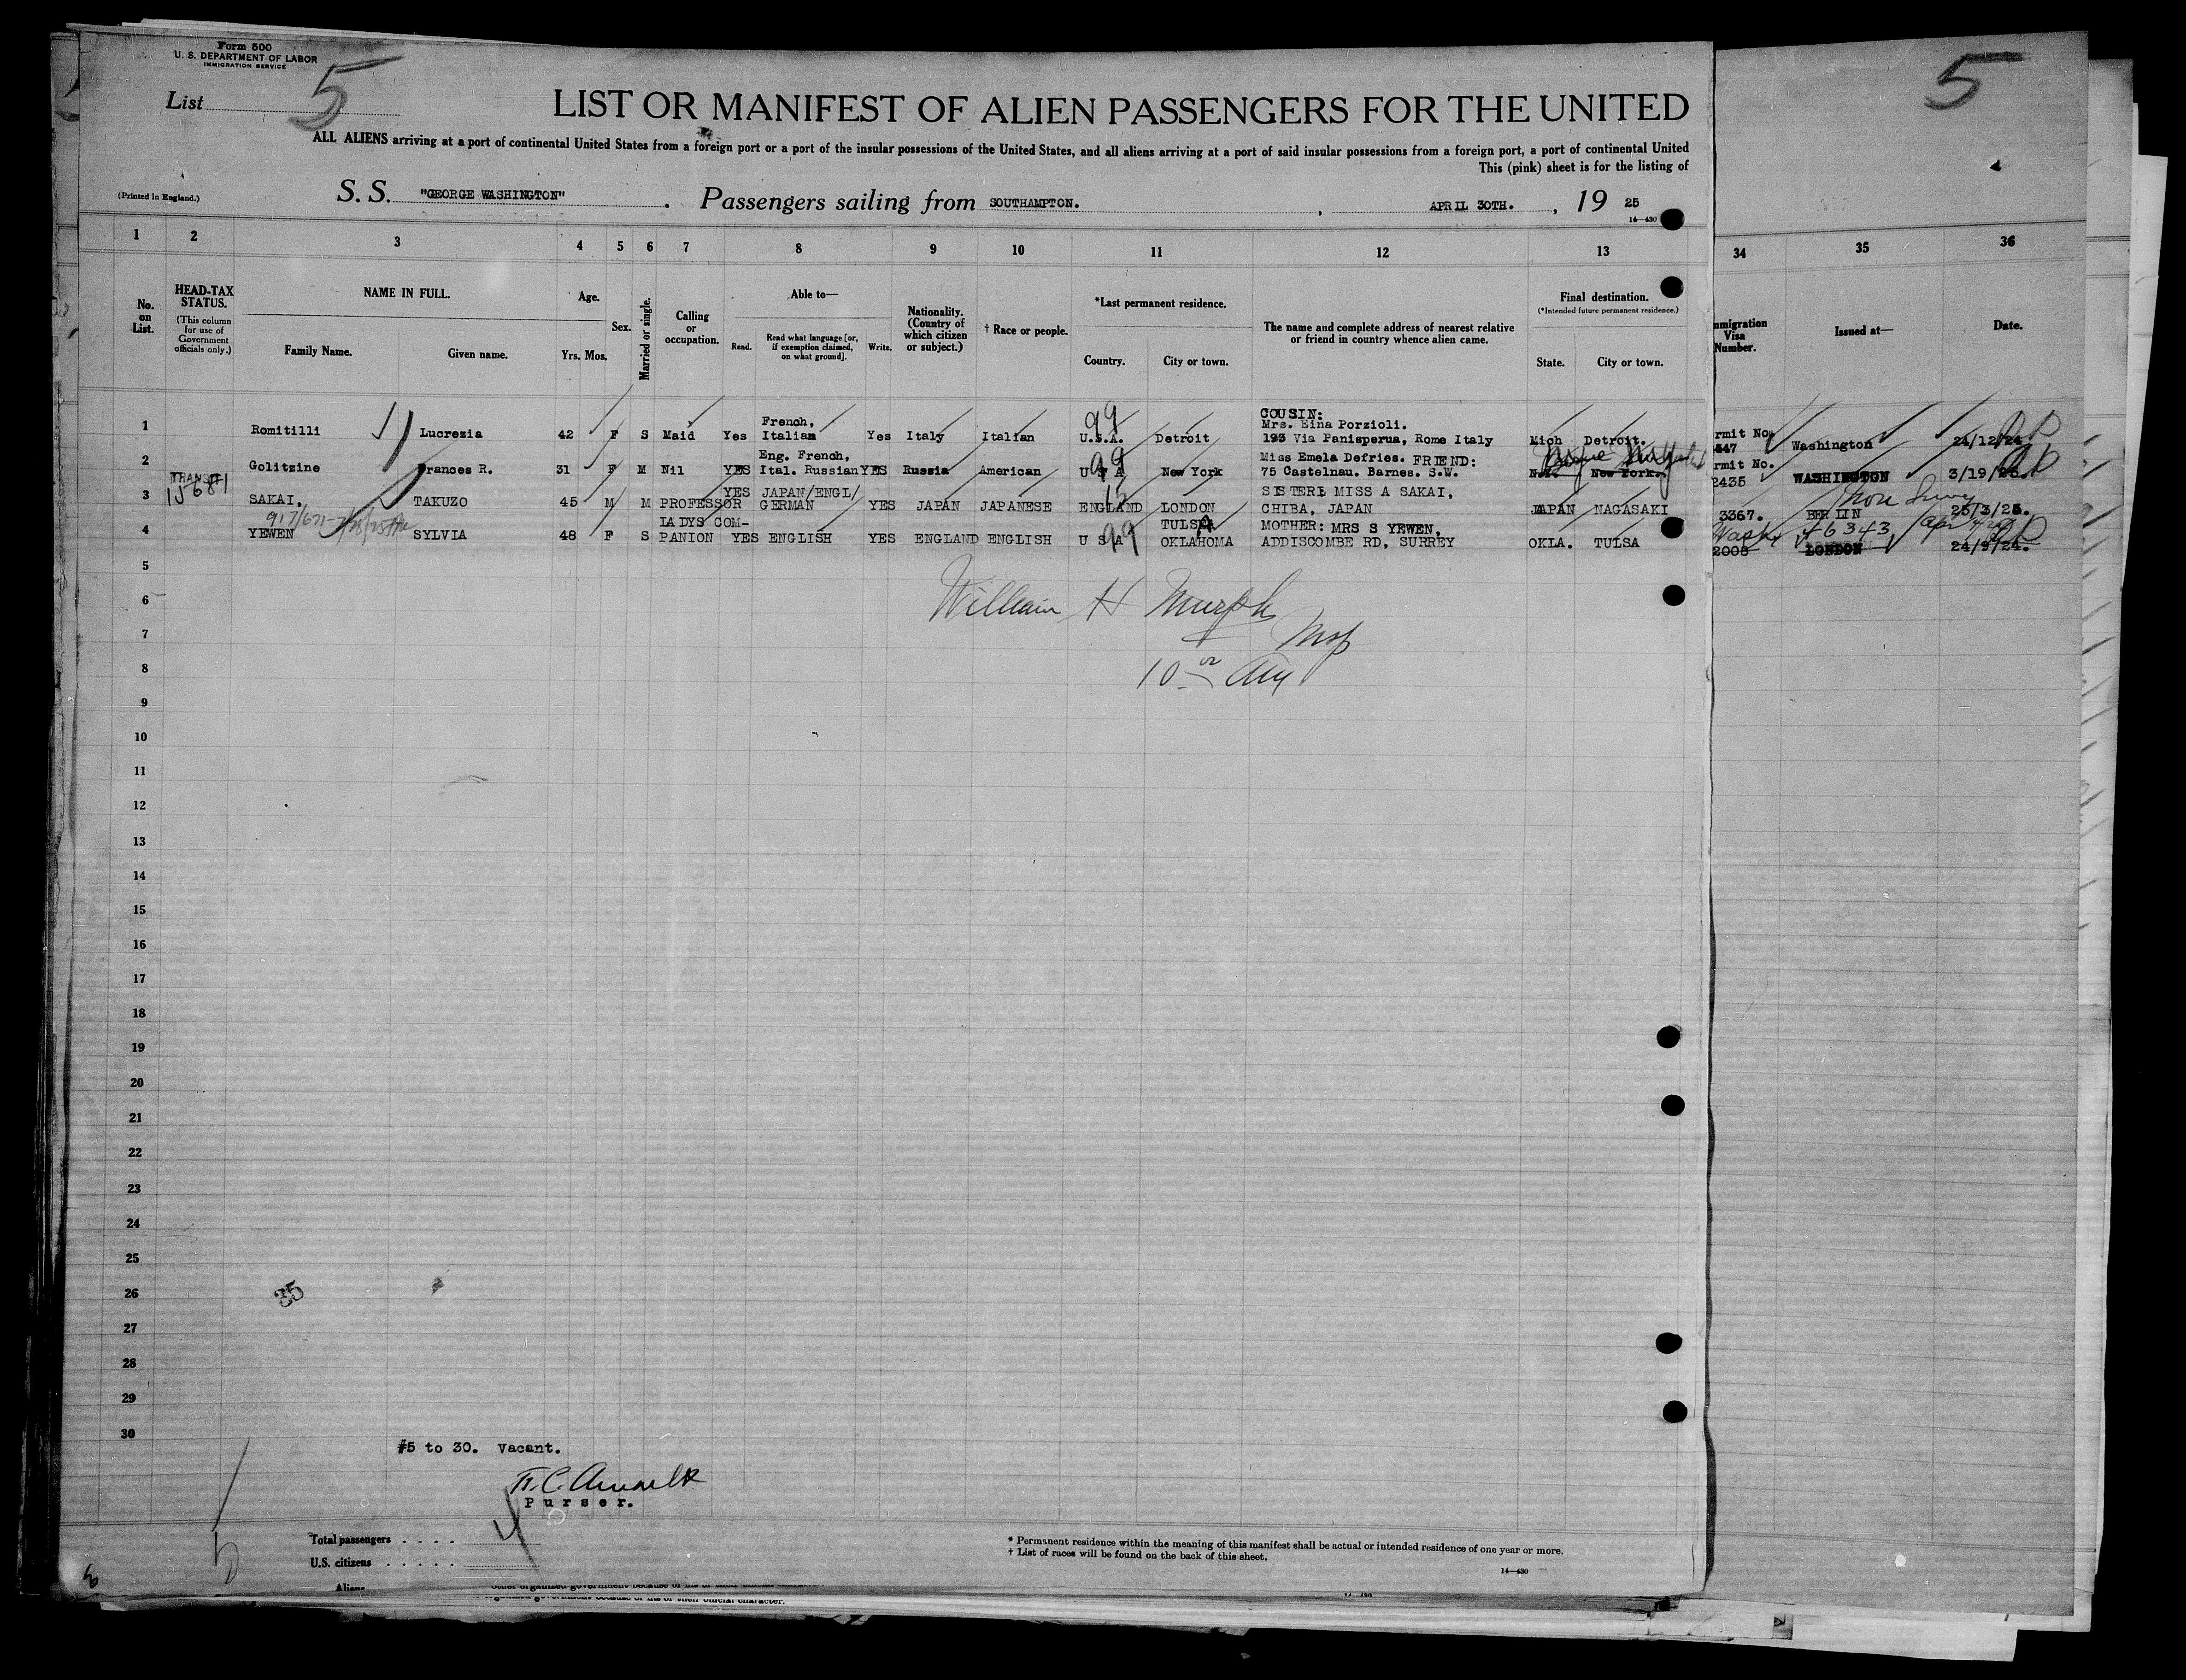 Form 500
U. S. DEPARTMENT OF LABOR
IMMIGRATION SERVICE
List 5
5
LIST OR MANIFEST OF ALIEN PASSENGERS FOR THE UNITED
ALL ALIENS arriving at a port of continental United States from a foreign port or a port of the insular possessions of the United States, and all aliens arriving at a port of said insular possessions from a foreign port, a port of continental United
This (pink) sheet is for the listing of
(Printed in England.)
S. S. "GEORGE WASHINGTON" . Passengers sailing from SOUTHAMPTON. , APRIL 30TH. , 19 25
14—430
1 2 3 4 5 6 7 8 9 10 11 12 13 34 35 36
No. on List.
HEAD-TAX STATUS.
(This column for use of Government officials only.)
NAME IN FULL.
Family Name. Given name.
Age.
Yrs. Mos.
Sex.
Married or single.
Calling or occupation.
Able to—
Read. Read what language [or, if exemption claimed, on what ground]. Write.
Nationality. (Country of which citizen or subject.)
† Race or people.
*Last permanent residence.
Country. City or town.
The name and complete address of nearest relative or friend in country whence alien came.
Final destination.
(*Intended future permanent residence.)
State. City or town.
mmigration Visa Number.
Issued at—
Date.
COUSIN:
French, 99 Mrs. Eina Porzioli.
1 Romitilli Lucrezia 42 F S Maid Yes Italian Yes Italy Italian U.S.A. Detroit 193 Via Panisperua, Rome Italy Mich Detroit. rmit No. 547 Washington 24/12/24
Eng. French, 99 Miss Emela Defries. FRIEND:
2 Golitzine Frances R. 31 F M Nil YES Ital. Russian YES Russia American U S A New York 75 Castelnau. Barnes. S.W. N.Y. New York. rmit No. 2435 WASHINGTON 3/19/25.
TRANSIT
15681
YES JAPAN/ENGL/ 15 SISTER: MISS A SAKAI,
3 SAKAI, TAKUZO 45 M M PROFESSOR GERMAN YES JAPAN JAPANESE ENGLAND LONDON CHIBA, JAPAN JAPAN NAGASAKI 3367. BERLIN 25/3/25.
LADYS COM- TULSA MOTHER: MRS S YEWEN, Wash 46343
4 YEWEN SYLVIA 48 F S PANION YES ENGLISH YES ENGLAND ENGLISH U S A 99 OKLAHOMA ADDISCOMBE RD, SURREY OKLA. TULSA 2008 LONDON 24/9/24.
5
6 William H Murphy
7 Insp
8
9
10
11
12
13
14
15
16
17
18
19
20
21
22
23
24
25
26
35
27
28
29
30
#5 to 30. Vacant.
Purser.
Total passengers . . . .
U.S. citizens . . . . .
Aliens
* Permanent residence within the meaning of this manifest shall be actual or intended residence of one year or more.
† List of races will be found on the back of this sheet.
14—430